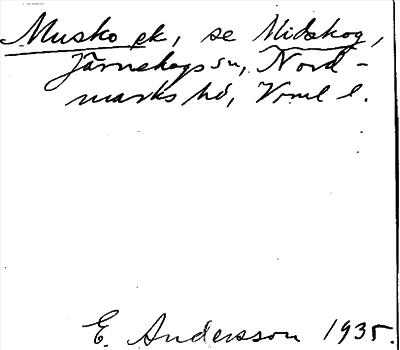 Musko ek, se Midskog,
Järnskogs sn, Nord-
marks hd, Vrml l.
E. Andersson 1935.